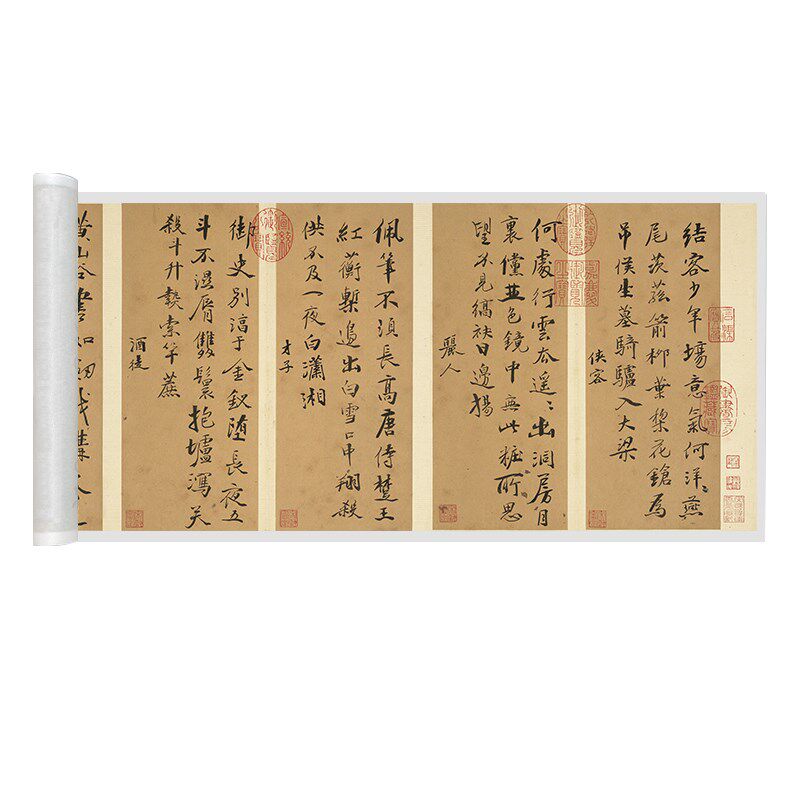 結客少年場意氣何洋〻燕
尾茨菰箭柳葉棃花鎗為
弔侯生墓騎驢入大梁
俠客
何處行雲去遙〻出洞房月
裏僅並色鏡中無此粧所思
望不見縞袂日邊揚
麗人
佩筆不須長高唐侍楚王
紅蘅塹追出白雪口中翔殺
供不及一夜白瀟湘
才子
御史別淳于金釵堕長夜五
斗不濕脣雙鬟抱壚瀉天
殺斗升索竿蔗
酒徒
黃山谷書如劍戟